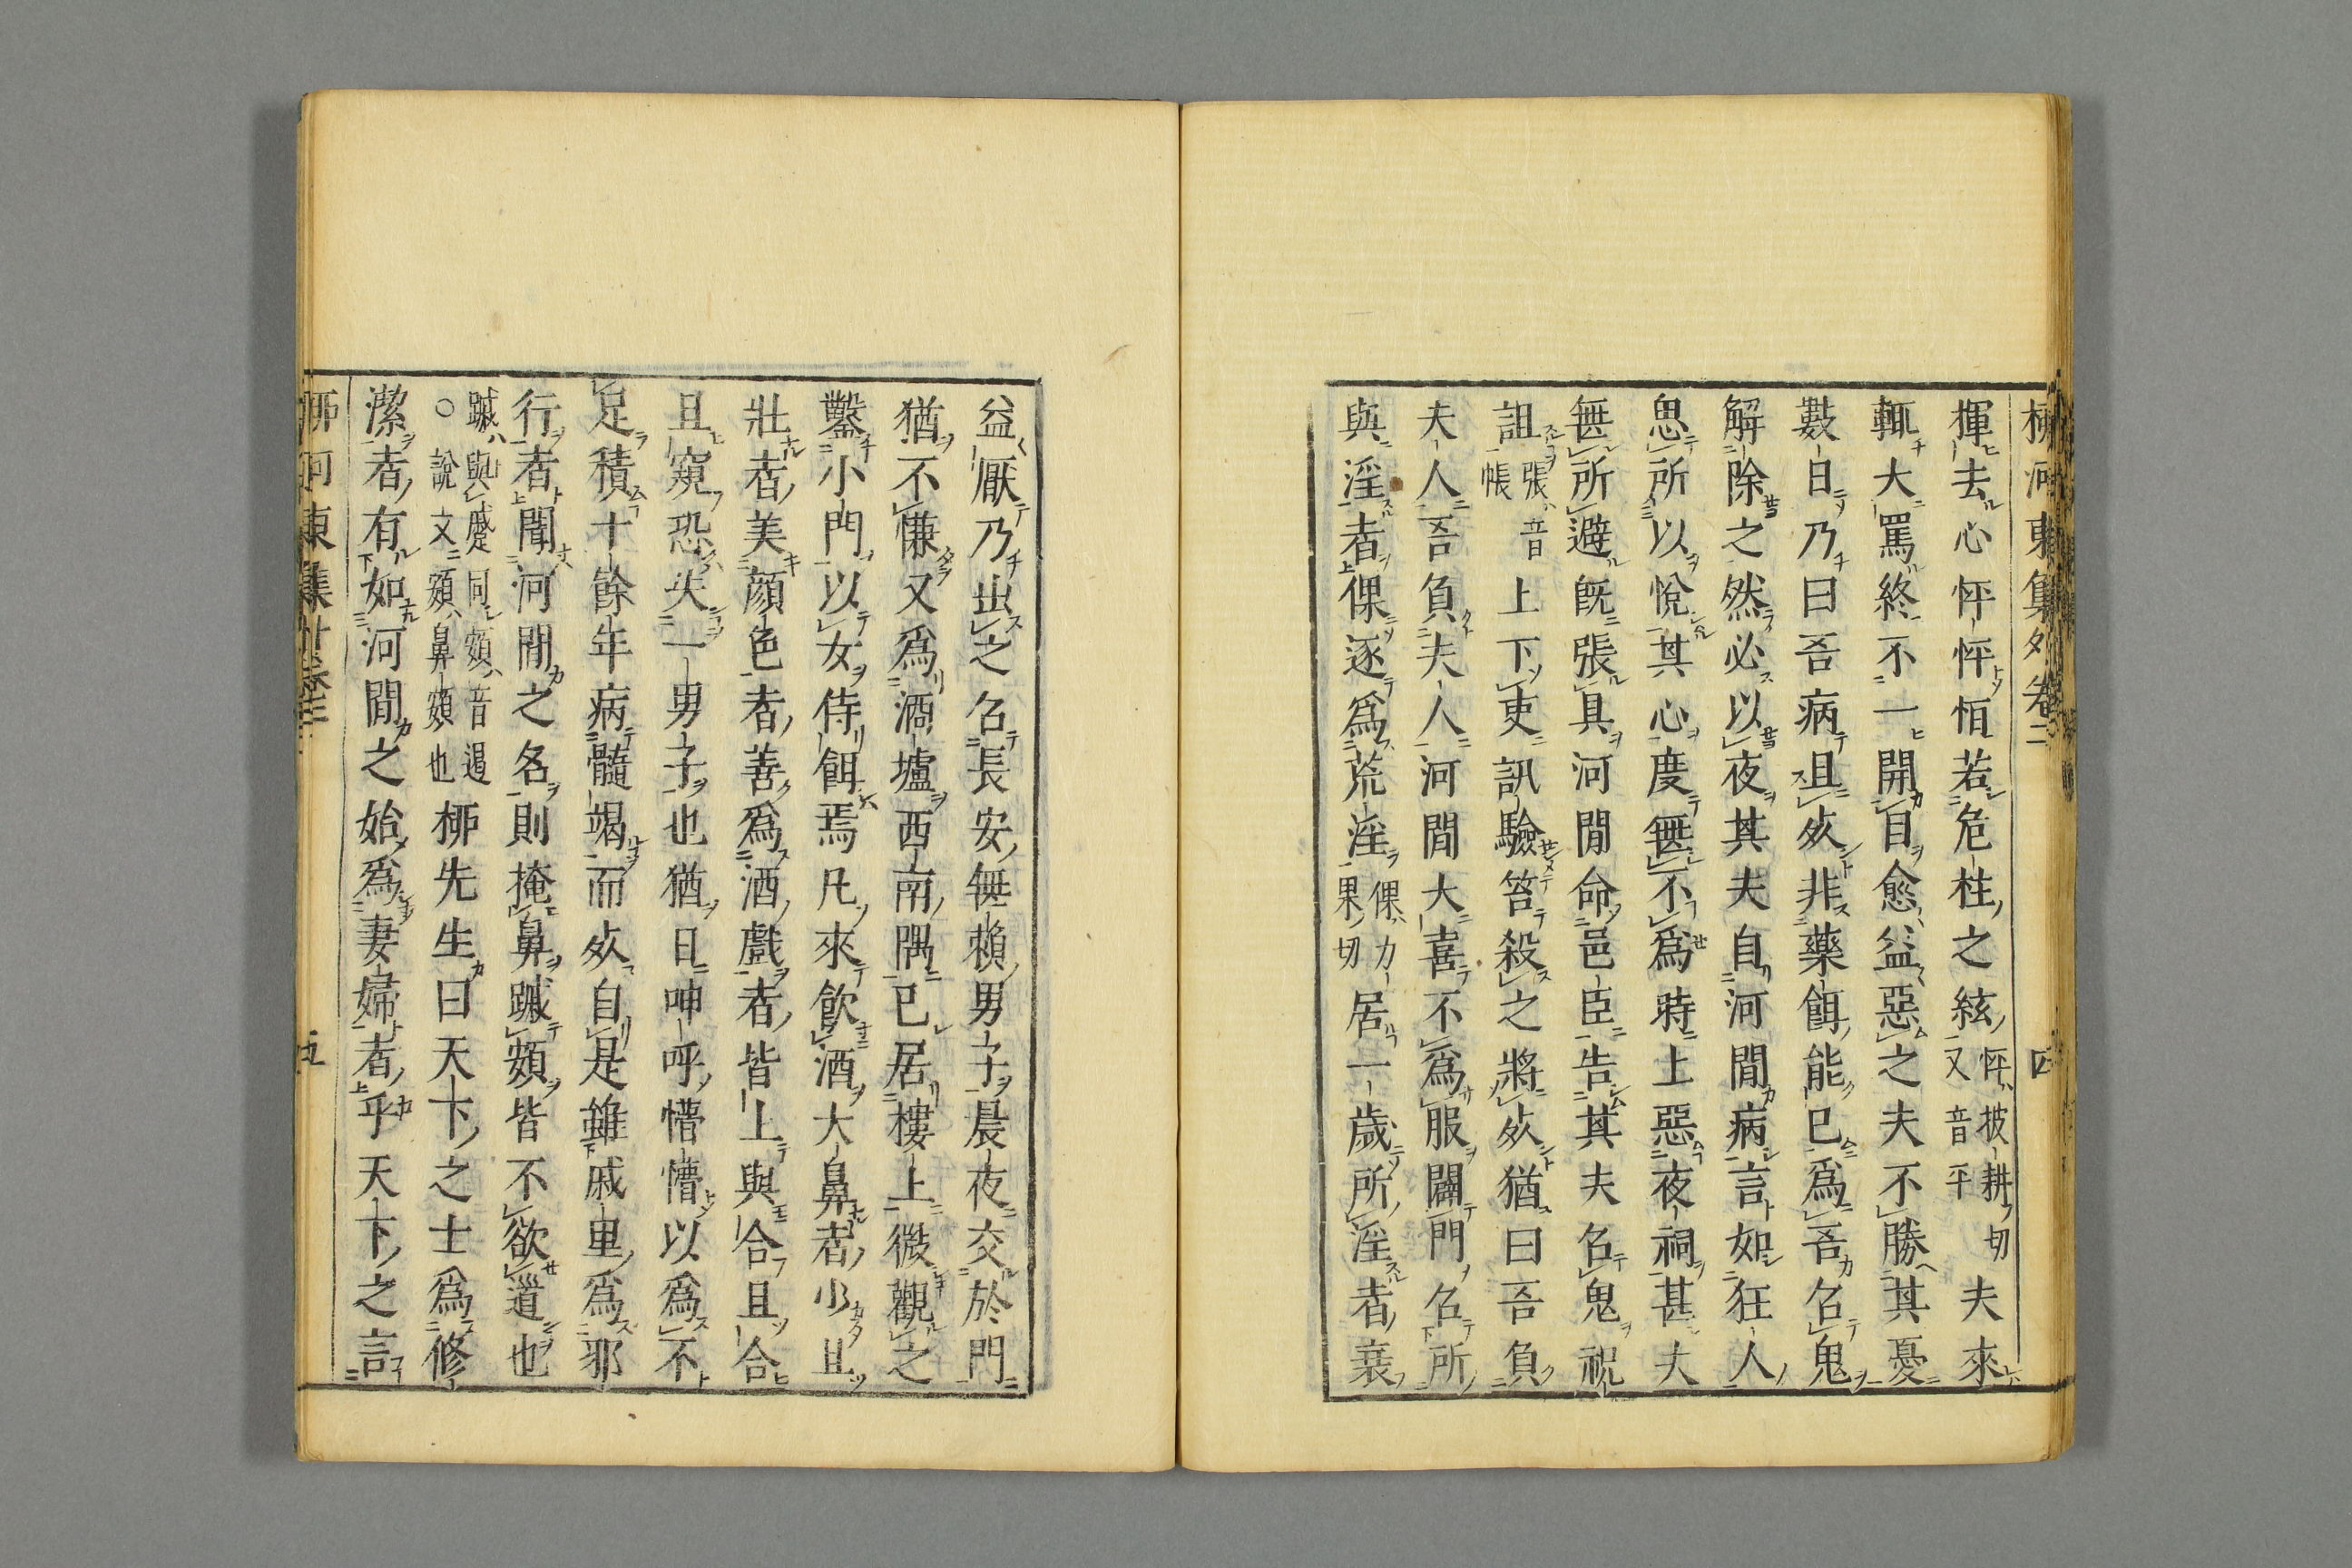 柳河東集外卷二 四
揮去心怦怦恒若危柱之絃怦披耕切又音平夫來
輒大罵終不一開目愈益惡之夫不勝其憂
數日乃曰吾病且死非藥餌能已爲吾召鬼
解除之然必以夜其夫自河閒病言如狂人
思所以悅其心度無不爲時上惡夜祠甚夫
無所避旣張具河閒命邑臣告其夫召鬼祝
詛張音帳上下吏訊驗笞殺之將死猶曰吾負
夫人吾負夫人河閒大喜不爲服闢門召所
與淫者倮逐爲荒淫倮力果切居一歲所淫者衰
益厭乃出之召長安無賴男子晨夜交於門
猶不慊又爲酒壚西南隅己居樓上微觀之
鑿小門以女侍餌焉凡來飲酒大鼻者少且
壯者美顏色者善爲酒戲者皆上與合且合
且窺恐失一男子也猶日呻呼懵懵以爲不
足積十餘年病髓竭而死自是雖戚里爲邪
行者聞河閒之名則掩鼻蹙頞皆不欲道也
蹙與蹵同頞音遏
○說文頞鼻頞也柳先生曰天下之士爲修
潔者有如河閒之始爲妻婦者乎天下之言
柳河東集外卷二 五